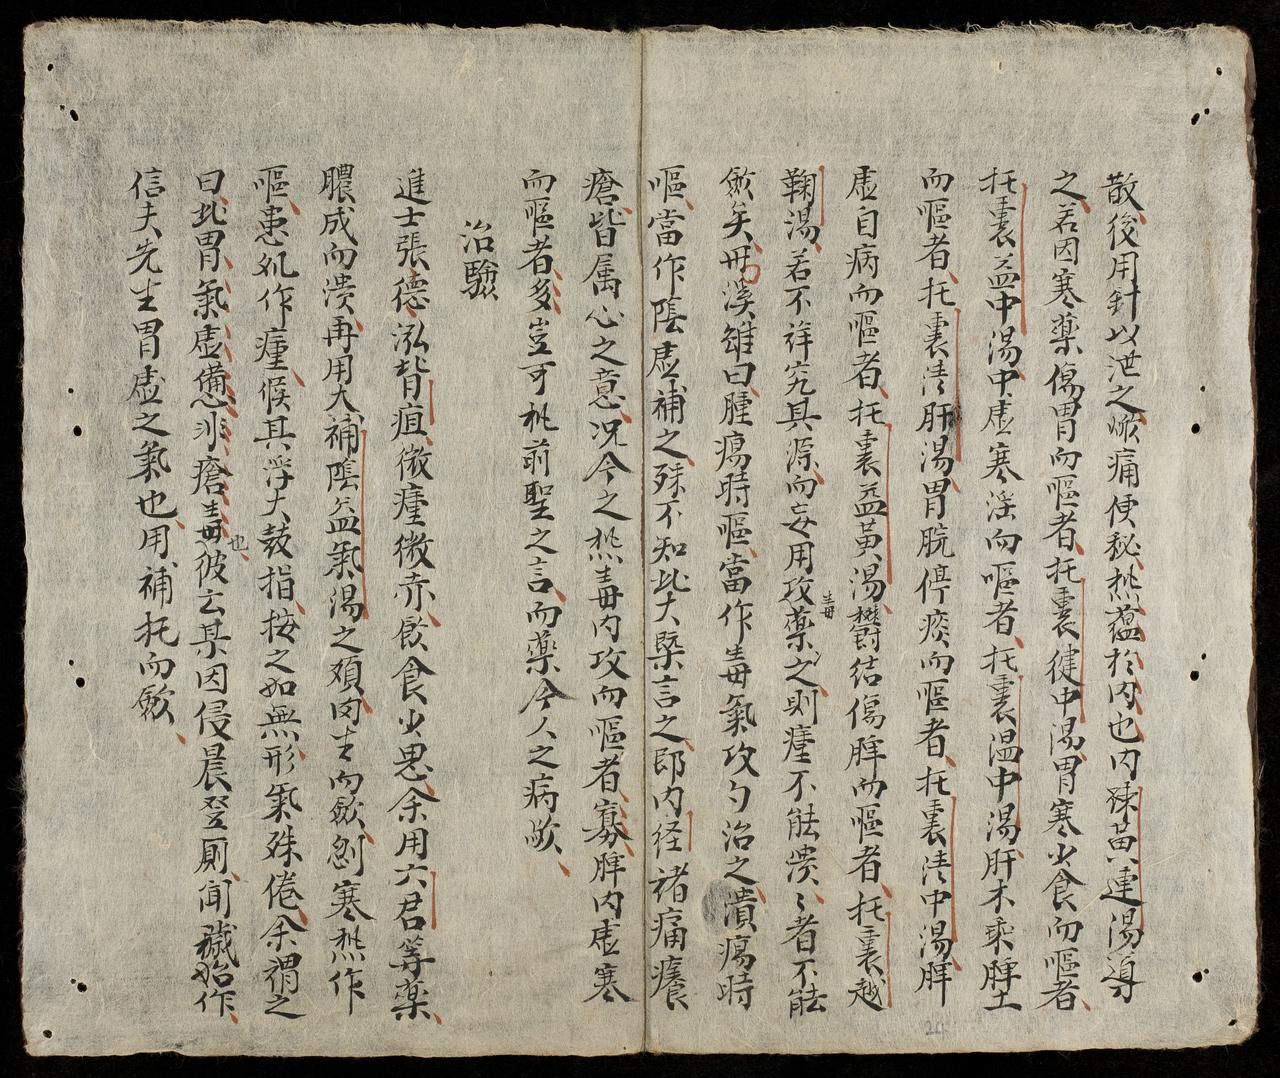 散後用針以泄之嗽痛便秘热蕴於内也内疎黄連湯導
之若因寒藥傷胃而嘔者托裏健中湯胃寒少食而嘔者
托裏益中湯中虚寒淫而嘔者托裏温中湯肝木乘脾土
而嘔者托裏清肝湯胃脘停痰而嘔者托裏清中湯脾
虚自病而嘔者托裏益黄湯欝结傷脾而嘔者托裏越
鞠湯若不詳究其源而妄用攻毒藥之則瘇不能溃〻者不能
斂矣丹溪雖曰腫瘍時嘔當作毒氣攻勺治之潰瘍時
嘔當作陰虚補之殊不知此大槩言之即内经诸痛癢
瘡皆属心之意况今之热毒内攻而嘔者寡脾内虚寒
而嘔者多豈可执前聖之言而藥今人之病欤
治驗
進士張德泓背疽微瘇微赤飲食少思余用六君等藥
膿成而溃再用大補陰益氣湯之類肉生而斂忽寒热作
嘔患处作瘇候其浮大鼓指按之如無形氣殊倦余谓之
曰此胃氣虚憊非瘡毒也彼云某因侵晨登厠闻穢始作
信夫先生胃虚之氣也用補托而斂